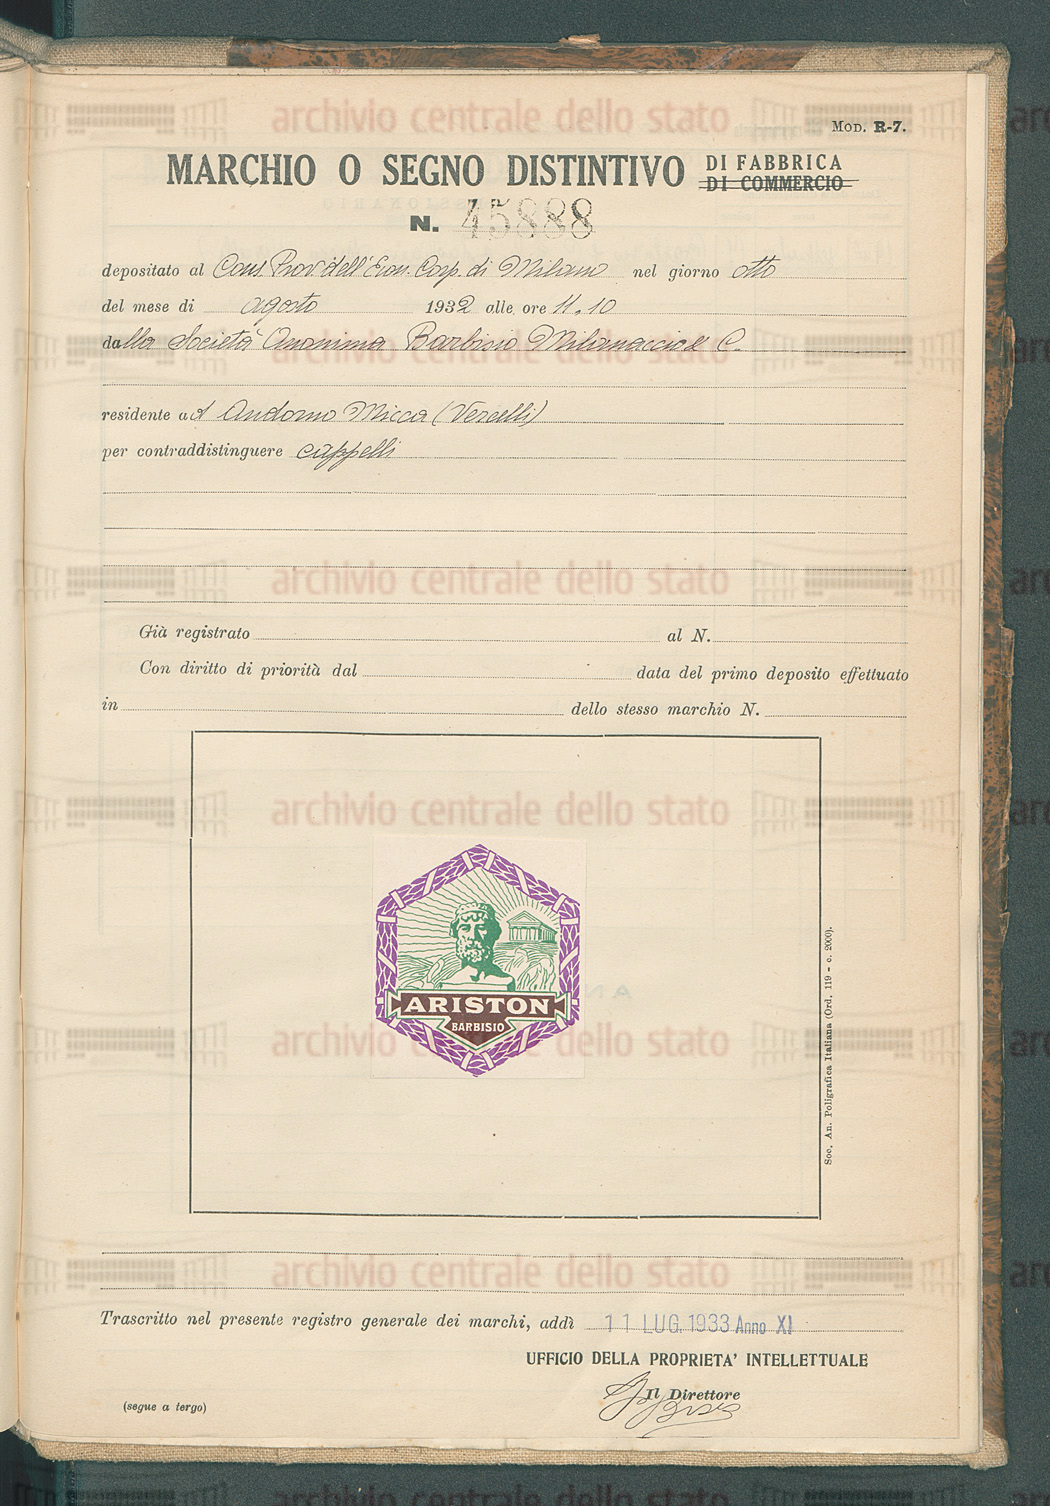 MOD. R-7.
MARCHIO O SEGNO DISTINTIVO DI FABBRICA
DI COMMERCIO
N. 45888
depositato al Cons. Prov. dell'Econ. Corp. di Milano nel giorno otto
del mese di agosto 1932 alle ore 11.10
dalla Società Anonima Barbisio Milanaccio & C.
residente ad Andorno Micca (Vercelli)
per contraddistinguere cappelli
Già registrato al N.
Con diritto di priorità dal data del primo deposito effettuato
in dello stesso marchio N.
ARISTON
BARBISIO
Soc. An. Poligrafica Italiana (Ord. 119 - c. 2000).
Trascritto nel presente registro generale dei marchi, addì 11 LUG. 1933 Anno XI
UFFICIO DELLA PROPRIETA' INTELLETTUALE
Il Direttore
(segue a tergo)
archivio centrale dello stato
archivio centrale dello stato
archivio centrale dello stato
archivio centrale dello stato
archivio centrale dello stato
archivio centrale dello stato
archivio centrale dello stato